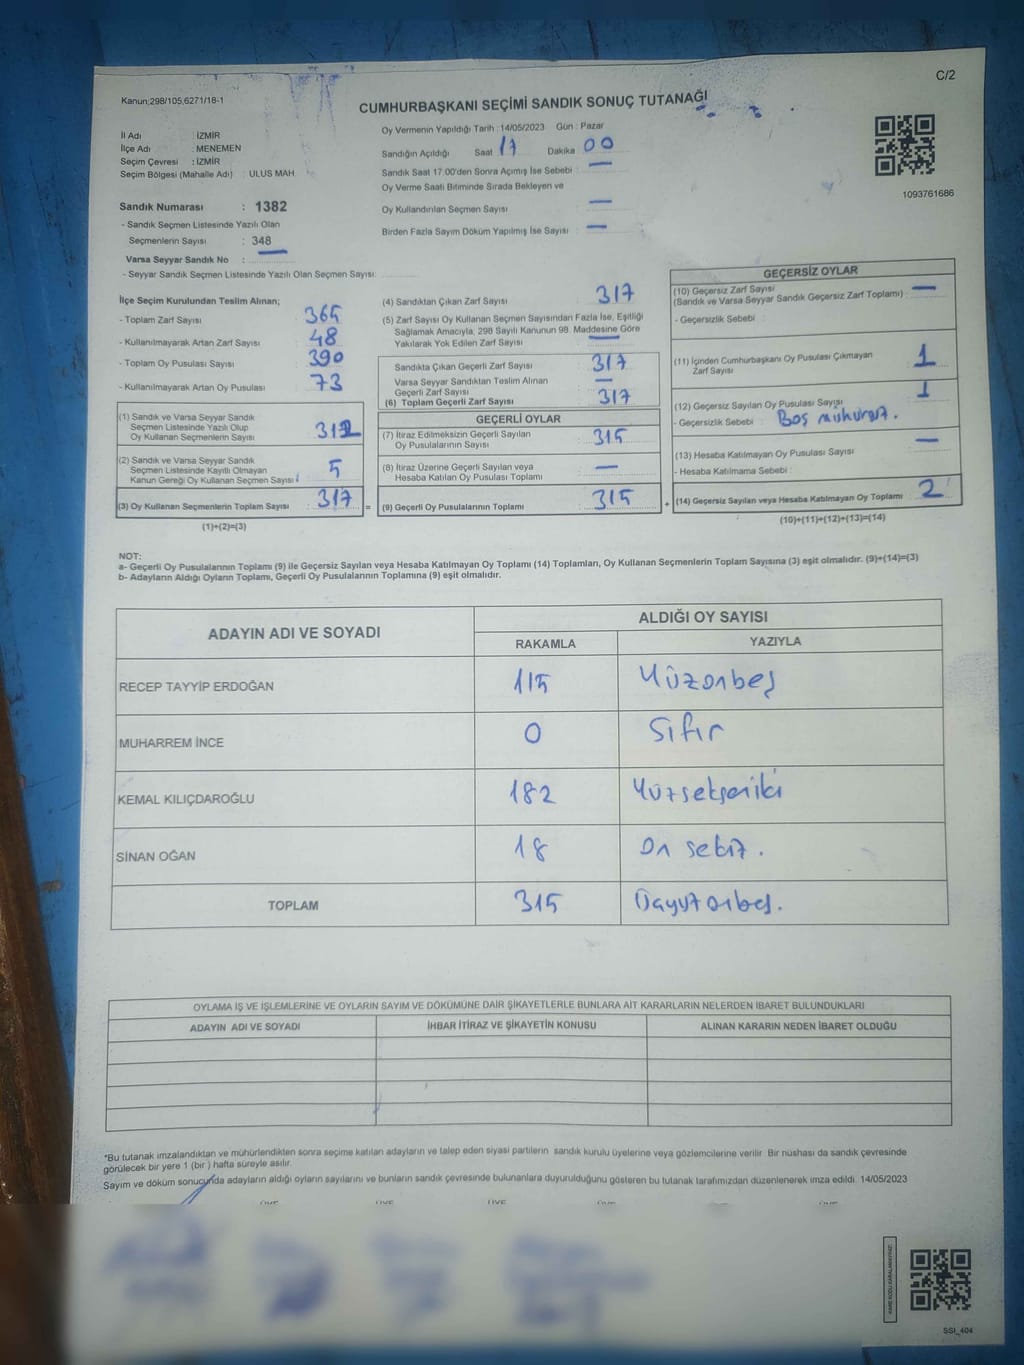 C/2
Kanun;298/105,6271/18-1
CUMHURBAŞKANI SEÇİMİ SANDIK SONUÇ TUTANAĞI
İl Adı : İZMİR
İlçe Adı : MENEMEN
Seçim Çevresi : İZMİR
Seçim Bölgesi (Mahalle Adı) : ULUS MAH
Oy Vermenin Yapıldığı Tarih : 14/05/2023 Gün : Pazar
Sandığın Açıldığı Saat 17 Dakika 00
Sandık Saat 17:00'den Sonra Açımış İse Sebebi : —
Oy Verme Saati Bitiminde Sırada Bekleyen ve
Oy Kullandırılan Seçmen Sayısı —
Birden Fazla Sayım Döküm Yapılmış İse Sayısı : —
1093761686
Sandık Numarası : 1382
- Sandık Seçmen Listesinde Yazılı Olan
Seçmenlerin Sayısı : 348
Varsa Seyyar Sandık No : —
- Seyyar Sandık Seçmen Listesinde Yazılı Olan Seçmen Sayısı:
İlçe Seçim Kurulundan Teslim Alınan;
- Toplam Zarf Sayısı : 365
- Kullanılmayarak Artan Zarf Sayısı : 48
- Toplam Oy Pusulası Sayısı : 390
- Kullanılmayarak Artan Oy Pusulası : 73
(1) Sandık ve Varsa Seyyar Sandık
Seçmen Listesinde Yazılı Olup
Oy Kullanan Seçmenlerin Sayısı : 312
(2) Sandık ve Varsa Seyyar Sandık
Seçmen Listesinde Kayıtlı Olmayan
Kanun Gereği Oy Kullanan Seçmen Sayısı : 5
(3) Oy Kullanan Seçmenlerin Toplam Sayısı : 317
(1)+(2)=(3)
(4) Sandıktan Çıkan Zarf Sayısı : 317
(5) Zarf Sayısı Oy Kullanan Seçmen Sayısından Fazla İse, Eşitliği
Sağlamak Amacıyla; 298 Sayılı Kanunun 98. Maddesine Göre
Yakılarak Yok Edilen Zarf Sayısı : —
Sandıkta Çıkan Geçerli Zarf Sayısı : 317
Varsa Seyyar Sandıktan Teslim Alınan
Geçerli Zarf Sayısı : —
(6) Toplam Geçerli Zarf Sayısı : 317
GEÇERLİ OYLAR
(7) İtiraz Edilmeksizin Geçerli Sayılan
Oy Pusulalarının Sayısı : 315
(8) İtiraz Üzerine Geçerli Sayılan veya
Hesaba Katılan Oy Pusulası Toplamı : —
= (9) Geçerli Oy Pusulalarının Toplamı : 315
GEÇERSİZ OYLAR
(10) Geçersiz Zarf Sayısı
(Sandık ve Varsa Seyyar Sandık Geçersiz Zarf Toplamı) : —
- Geçersizlik Sebebi :
(11) İçinden Cumhurbaşkanı Oy Pusulası Çıkmayan
Zarf Sayısı : 1
(12) Geçersiz Sayılan Oy Pusulası Sayısı : 1
- Geçersizlik Sebebi : Boş
(13) Hesaba Katılmayan Oy Pusulası Sayısı : —
- Hesaba Katılmama Sebebi :
+ (14) Geçersiz Sayılan veya Hesaba Katılmayan Oy Toplamı : 2
(10)+(11)+(12)+(13)=(14)
NOT:
a- Geçerli Oy Pusulalarının Toplamı (9) ile Geçersiz Sayılan veya Hesaba Katılmayan Oy Toplamı (14) Toplamları, Oy Kullanan Seçmenlerin Toplam Sayısına (3) eşit olmalıdır. (9)+(14)=(3)
b- Adayların Aldığı Oyların Toplamı, Geçerli Oy Pusulalarının Toplamına (9) eşit olmalıdır.
ADAYIN ADI VE SOYADI
ALDIĞI OY SAYISI
RAKAMLA YAZIYLA
RECEP TAYYİP ERDOĞAN 115 Yüzonbeş
MUHARREM İNCE 0 Sıfır
KEMAL KILIÇDAROĞLU 182 Yüzsekseniki
SİNAN OĞAN 18 On sekiz.
TOPLAM 315 Üçyüzonbeş.
OYLAMA İŞ VE İŞLEMLERİNE VE OYLARIN SAYIM VE DÖKÜMÜNE DAİR ŞİKAYETLERLE BUNLARA AİT KARARLARIN NELERDEN İBARET BULUNDUKLARI
ADAYIN ADI VE SOYADI İHBAR İTİRAZ VE ŞİKAYETİN KONUSU ALINAN KARARIN NEDEN İBARET OLDUĞU
*Bu tutanak imzalandıktan ve mühürlendikten sonra seçime katılan adayların ve talep eden siyasi partilerin sandık kurulu üyelerine veya gözlemcilerine verilir. Bir nüshası da sandık çevresinde
görülecek bir yere 1 (bir ) hafta süreyle asılır.
Sayım ve döküm sonucunda adayların aldığı oyların sayılarını ve bunların sandık çevresinde bulunanlara duyurulduğunu gösteren bu tutanak tarafımızdan düzenlenerek imza edildi. 14/05/2023
SSI_404